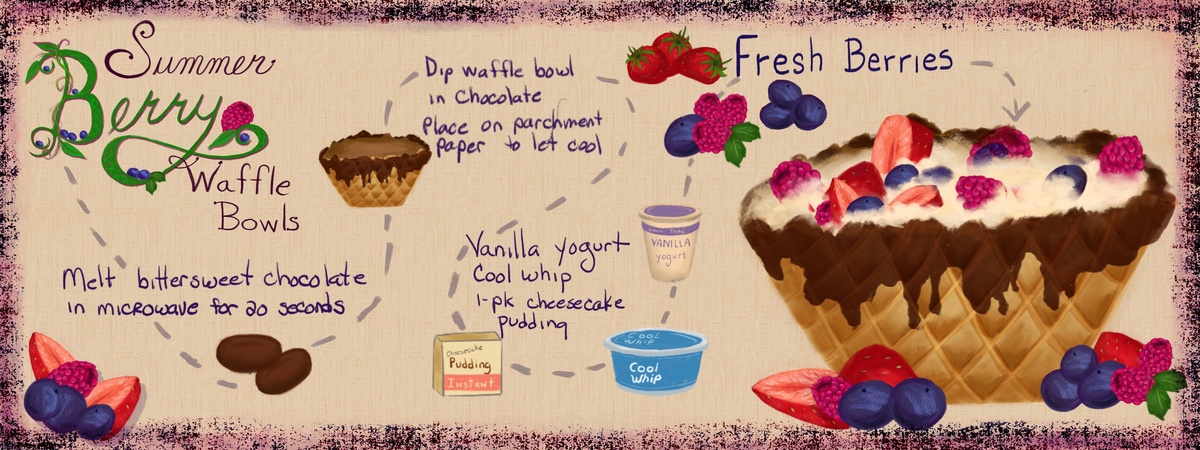 Summer
Berry
Waffle
Bowls
Melt bittersweet chocolate
in microwave for 20 seconds
Dip waffle bowl
in Chocolate
Place on parchment
paper to let cool
Vanilla yogurt
Cool whip
1-pk cheesecake
pudding
VANILLA
yogurt
Cheesecake
Pudding
INSTANT
COOL
WHIP
Cool
Whip
Fresh Berries